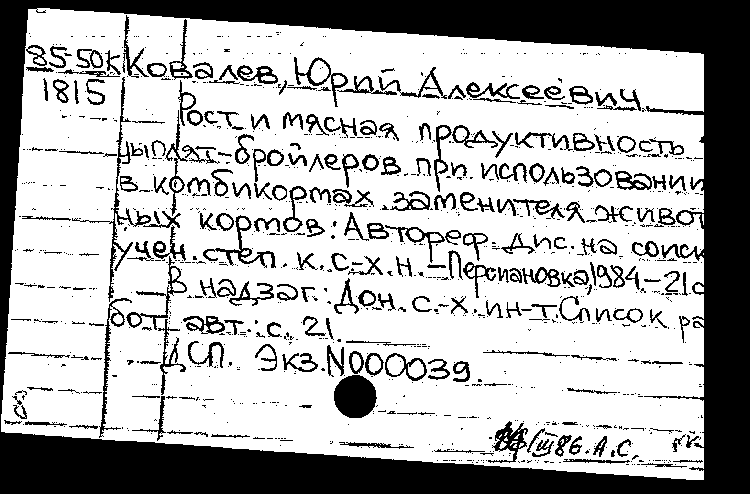 85-50К Ковалев, Юрий Алексеевич.
1815
Рост и мясная продуктивность
цыплят-бройлеров при использовании
в комбикормах заменителя живот
ных кормов: Автореф. дис. на соиск
учен. степ. к. с-х. н. -Персиановка, 1984 - 21с
В надзаг.: Дон. с.-х. ин-т. Список ра
бот авт.: с. 21.
ДСП. Экз. N000039.
8
III 86. А.С.